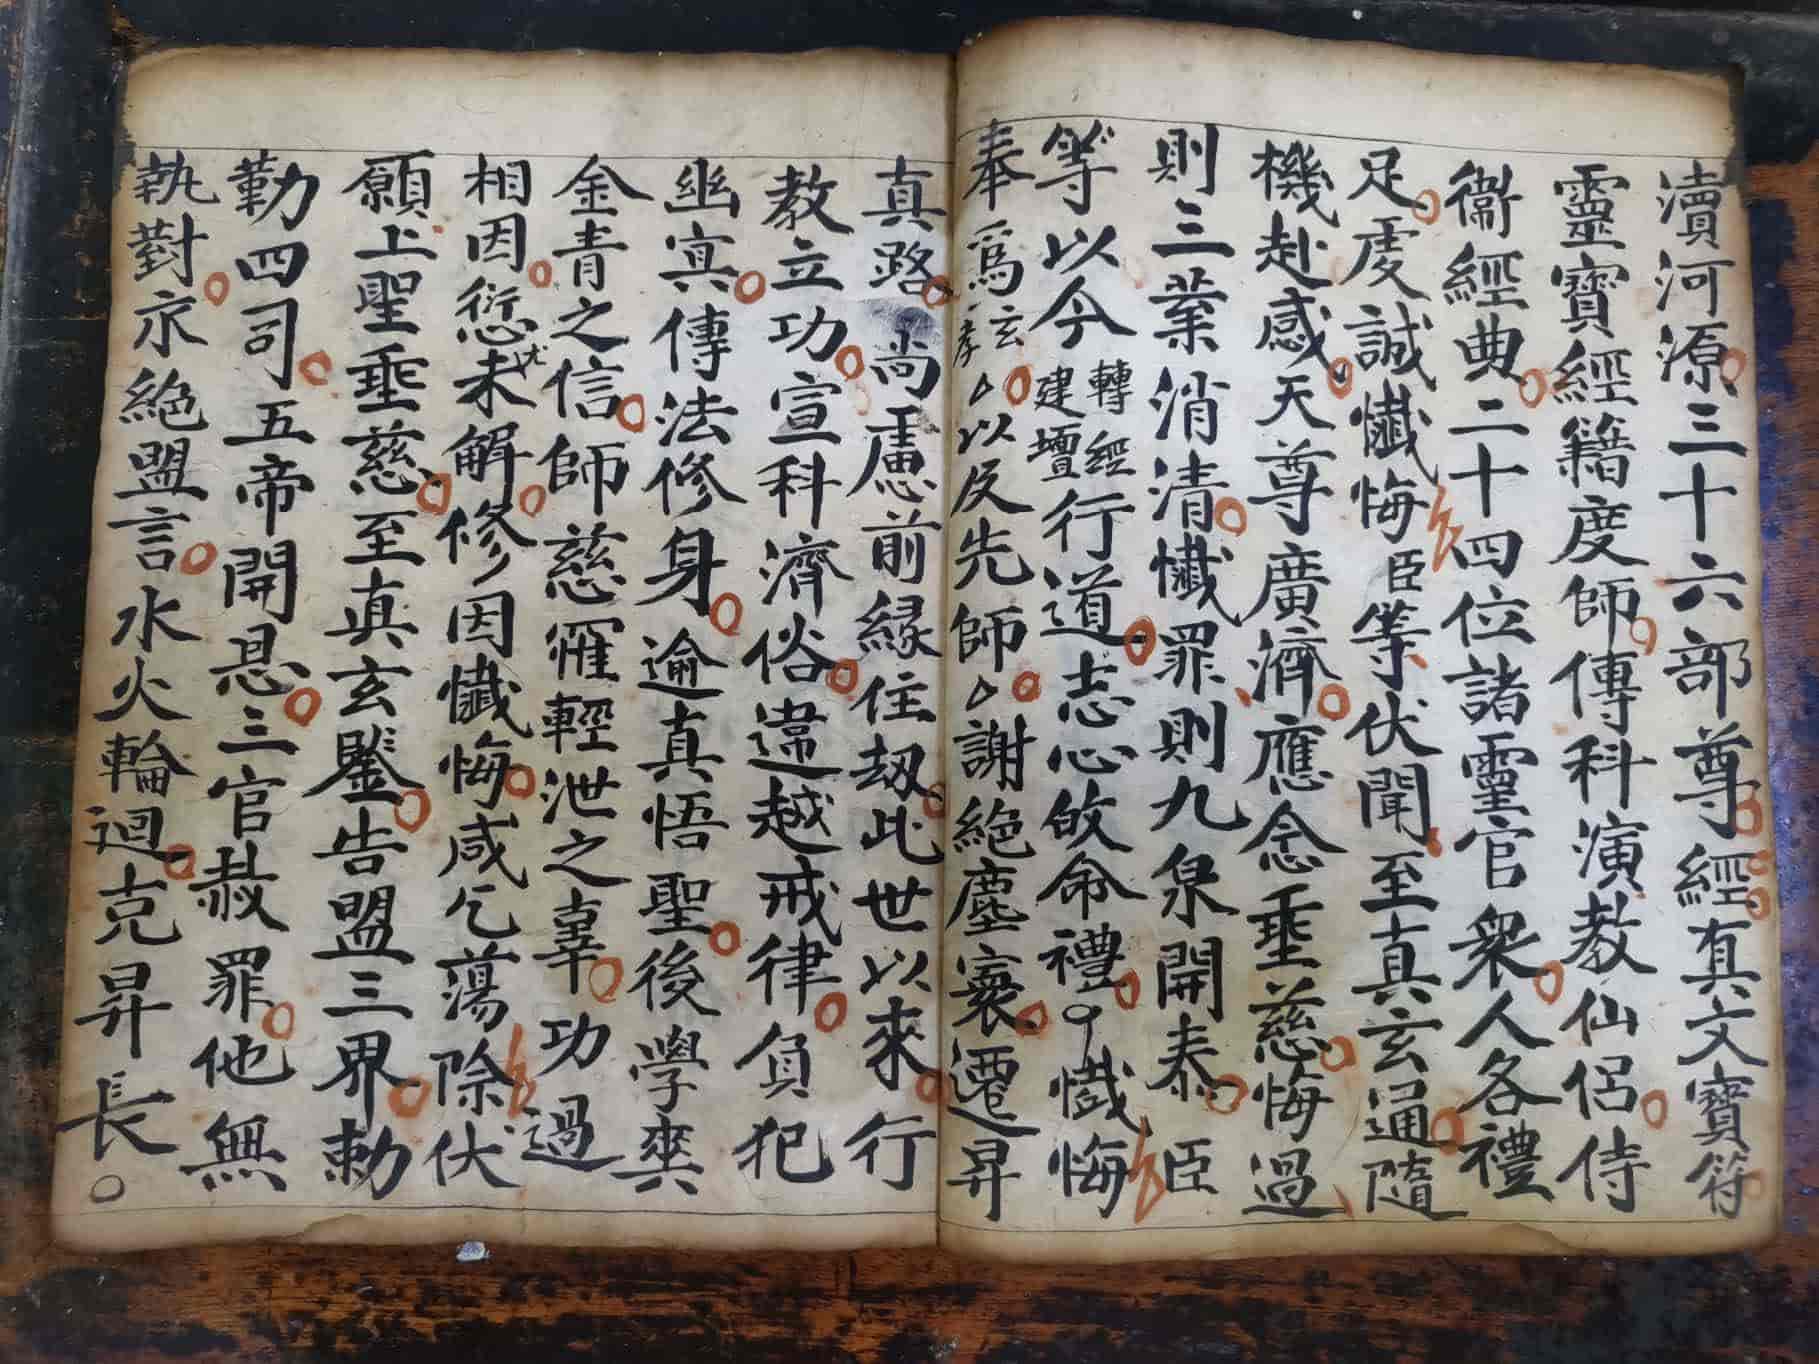 瀆河源三十六部尊經真文寶符
靈寶經籍度師傳科演教仙侶侍
衞經典二十四位諸靈官衆人各禮
足虔誠懺悔臣等伏聞至真玄通隨
機赴感天尊廣濟應念垂慈悔過
則三業消清懺罪則九泉開泰臣
等以今轉經建壇行道志心皈命禮懺悔
奉爲玄孝以及先師謝絶塵寰遷昇
真路尚慮前緣住刼此世以來行
教立功宣科濟俗違越戒律負犯
幽㝠傳法修身逾真悟聖後學爽
金青之信師慈罹輕泄之辜功過
相因愆尤未解修因懺悔咸乞蕩除伏
願上聖垂慈至真玄鑒告盟三界勅
勒四司五帝開恩三官赦罪他無
執對永絶盟言水火輪迴克昇長